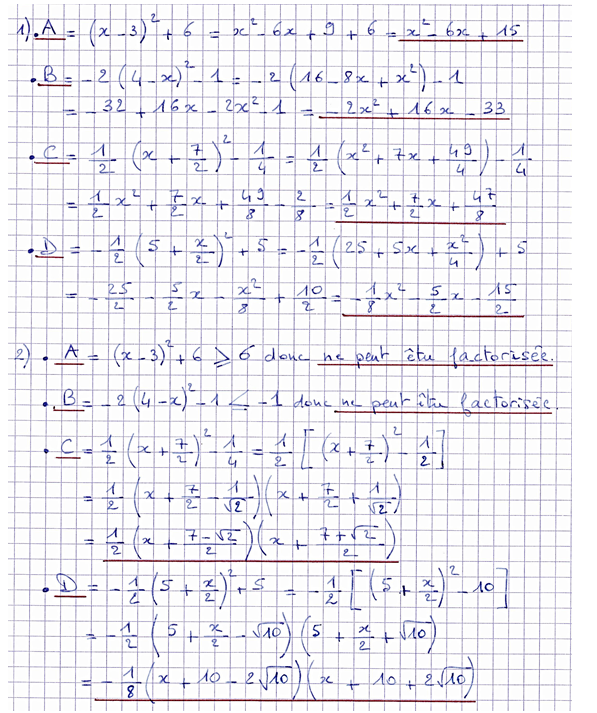 1) . A = (x - 3)² + 6 = x² - 6x + 9 + 6 = x² - 6x + 15
. B = - 2 (4 - x)² - 1 = - 2 (16 - 8x + x²) - 1
= - 32 + 16x - 2x² - 1 = - 2x² + 16x - 33
. C = 1/2 (x + 7/2)² - 1/4 = 1/2 (x² + 7x + 49/4) - 1/4
= 1/2 x² + 7/2 x + 49/8 - 2/8 = 1/2 x² + 7/2 x + 47/8
. D = - 1/2 (5 + x/2)² + 5 = - 1/2 (25 + 5x + x²/4) + 5
= - 25/2 - 5/2 x - x²/8 + 10/2 = - 1/8 x² - 5/2 x - 15/2
2) . A = (x - 3)² + 6 ⩾ 6 donc ne peut être factorisée.
. B = - 2 (4 - x)² - 1 ⩽ - 1 donc ne peut être factorisée.
. C = 1/2 (x + 7/2)² - 1/4 = 1/2 [(x + 7/2)² - 1/2]
= 1/2 (x + 7/2 - 1/√2)(x + 7/2 + 1/√2)
= 1/2 (x + (7 - √2)/2)(x + (7 + √2)/2)
. D = - 1/2 (5 + x/2)² + 5 = - 1/2 [(5 + x/2)² - 10]
= - 1/2 (5 + x/2 - √10)(5 + x/2 + √10)
= - 1/8 (x + 10 - 2√10)(x + 10 + 2√10)